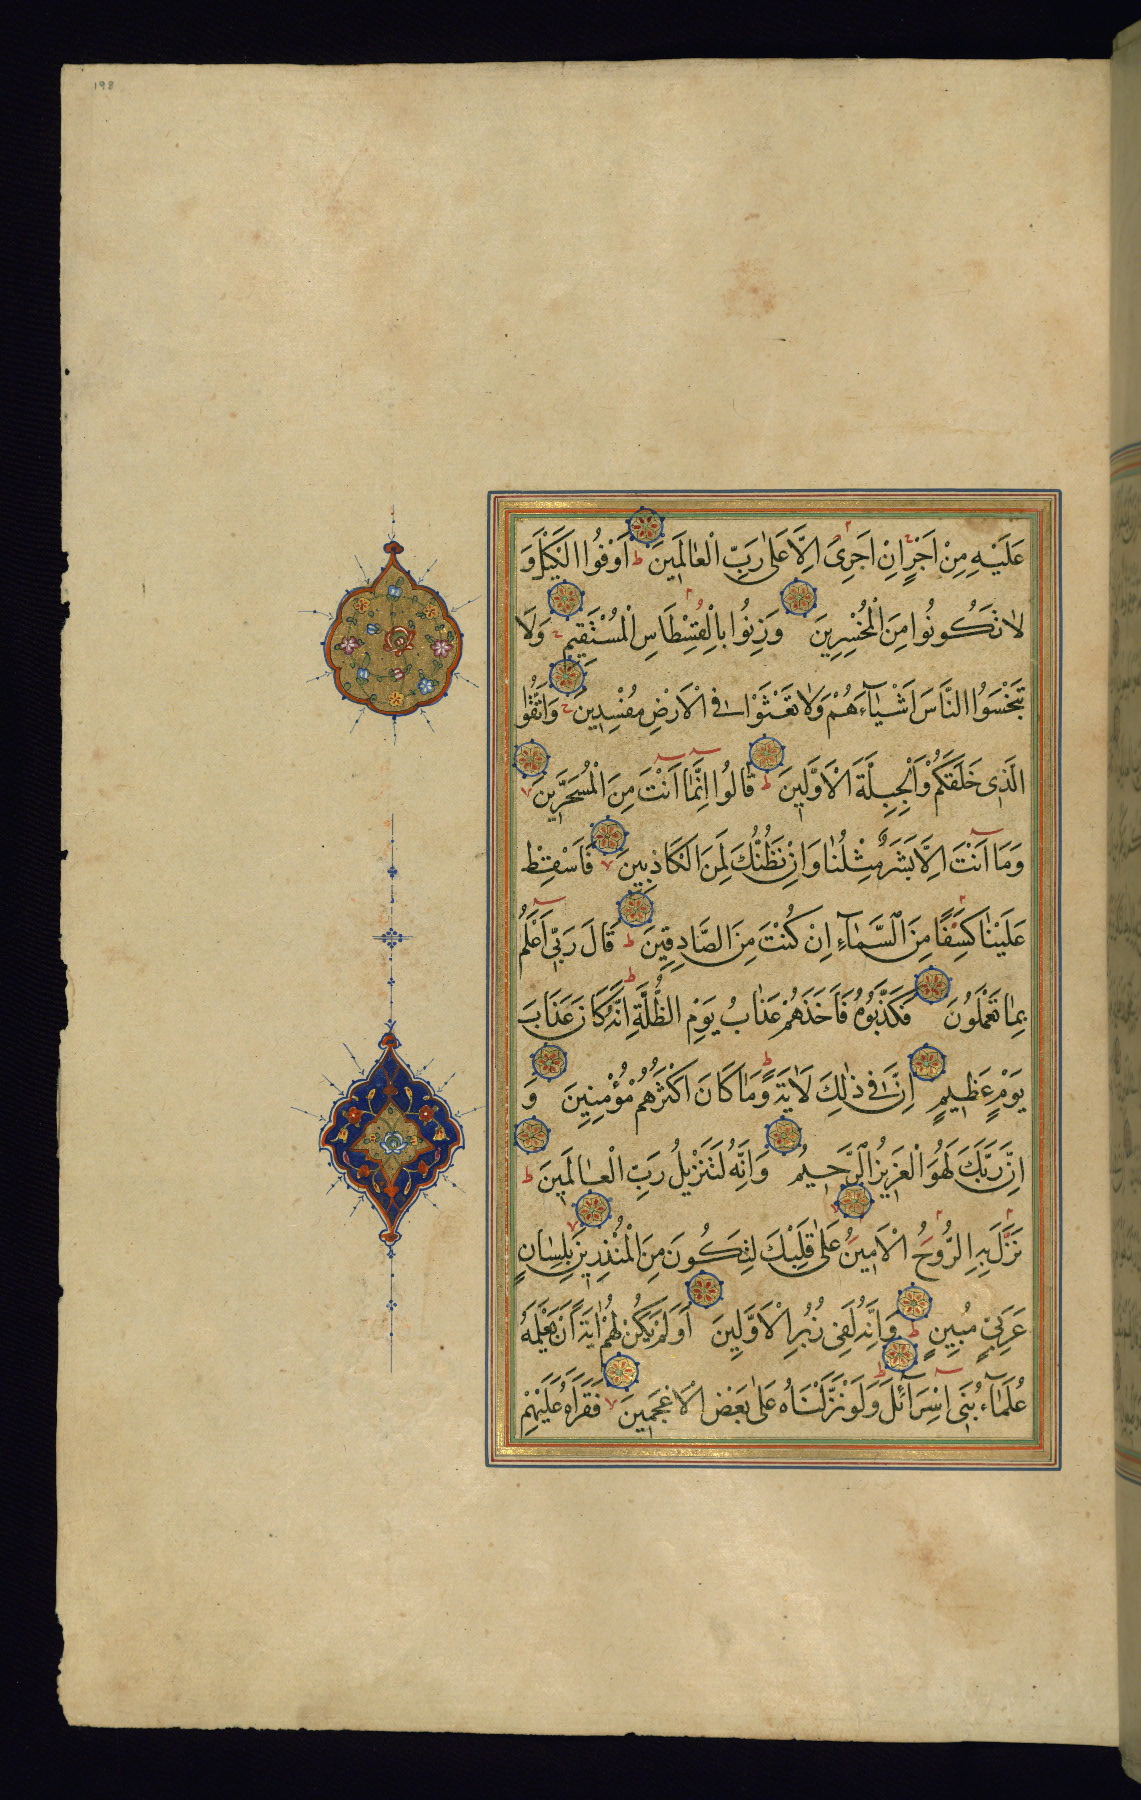 198
عَلَيْهِ مِنْ اَجْرٍ اِنْ اَجْرِىَ اِلَّا عَلٰى رَبِّ الْعَالَمِينَ ط اَوْفُوا الْكَيْلَ وَ
لَا تَكُونُوا مِنَ الْمُخْسِرِينَ وَزِنُوا بِالْقِسْطَاسِ الْمُسْتَقِيمِ ج وَلَا
تَبْخَسُوا النَّاسَ اَشْيَآءَهُمْ وَلَا تَعْثَوْا فِى الْاَرْضِ مُفْسِدِينَ ج وَاتَّقُوا
الَّذِى خَلَقَكُمْ وَالْجِبِلَّةَ الْاَوَّلِينَ ط قَالُوا اِنَّمَا اَنْتَ مِنَ الْمُسَحَّرِينَ
وَمَا اَنْتَ اِلَّا بَشَرٌ مِثْلُنَا وَاِنْ نَظُنُّكَ لَمِنَ الْكَاذِبِينَ فَاَسْقِطْ
عَلَيْنَا كِسَفًا مِنَ السَّمَآءِ اِنْ كُنْتَ مِنَ الصَّادِقِينَ ط قَالَ رَبِّى اَعْلَمُ
بِمَا تَعْمَلُونَ فَكَذَّبُوهُ فَاَخَذَهُمْ عَذَابُ يَوْمِ الظُّلَّةِ ط اِنَّهُ كَانَ عَذَابَ
يَوْمٍ عَظِيمٍ اِنَّ فِى ذٰلِكَ لَاٰيَةً ط وَمَا كَانَ اَكْثَرُهُمْ مُؤْمِنِينَ وَ
اِنَّ رَبَّكَ لَهُوَ الْعَزِيزُ الرَّحِيمُ وَاِنَّهُ لَتَنْزِيلُ رَبِّ الْعَالَمِينَ ط
نَزَّلَ بِهِ الرُّوحَ الْاَمِينَ عَلٰى قَلْبِكَ لِتَكُونَ مِنَ الْمُنْذِرِينَ بِلِسَانٍ
عَرَبِىٍّ مُبِينٍ ط وَاِنَّهُ لَفِى زُبُرِ الْاَوَّلِينَ اَوَلَمْ يَكُنْ لَهُمْ اٰيَةً اَنْ يَعْلَمَهُ
عُلَمَآءُ بَنِى اِسْرَآئِلَ ط وَلَوْ نَزَّلْنَاهُ عَلٰى بَعْضِ الْاَعْجَمِينَ فَقَرَاَهُ عَلَيْهِمْ